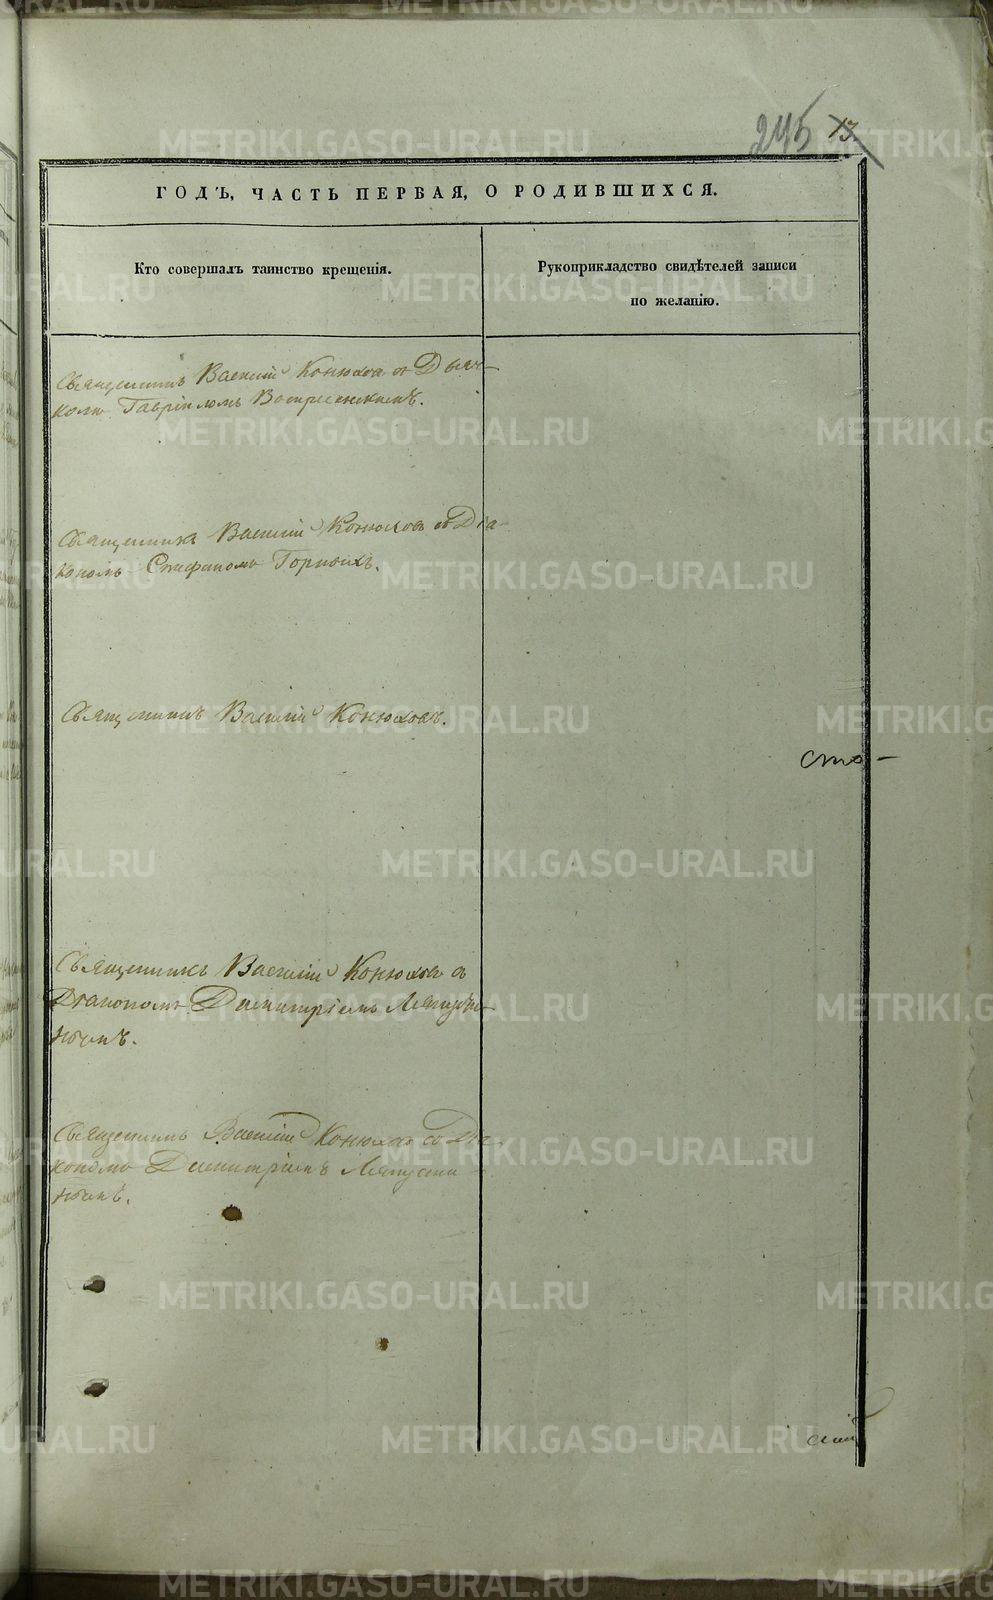 245 13
ГОДЪ, ЧАСТЬ ПЕРВАЯ, О РОДИВШИХСЯ.
Кто совершалъ таинство крещенія.
Рукоприкладство свидѣтелей записи
по желанію.
Священникъ Василій Конюховъ съ Дьяч-
комъ Гавріиломъ Воскресенскимъ.
Священникъ Василій Конюховъ съ Діа-
кономъ Стефаномъ Горныхъ.
Священникъ Василій Конюховъ.
сто-
Священникъ Василій Конюховъ съ
Діакономъ Димитріемъ Ляпусти-
нымъ.
Священникъ Василій Конюховъ съ Діа-
кономъ Димитріемъ Ляпусти-
нымъ.
METRIKI.GASO-URAL.RU